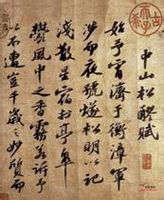 中山松醪賦
始予宵濟於衡漳軍
涉而夜號燧松明以記
淺散星宿於亭皋
鬱風中之香霧若訴予
以不遭豈千歲之妙質而